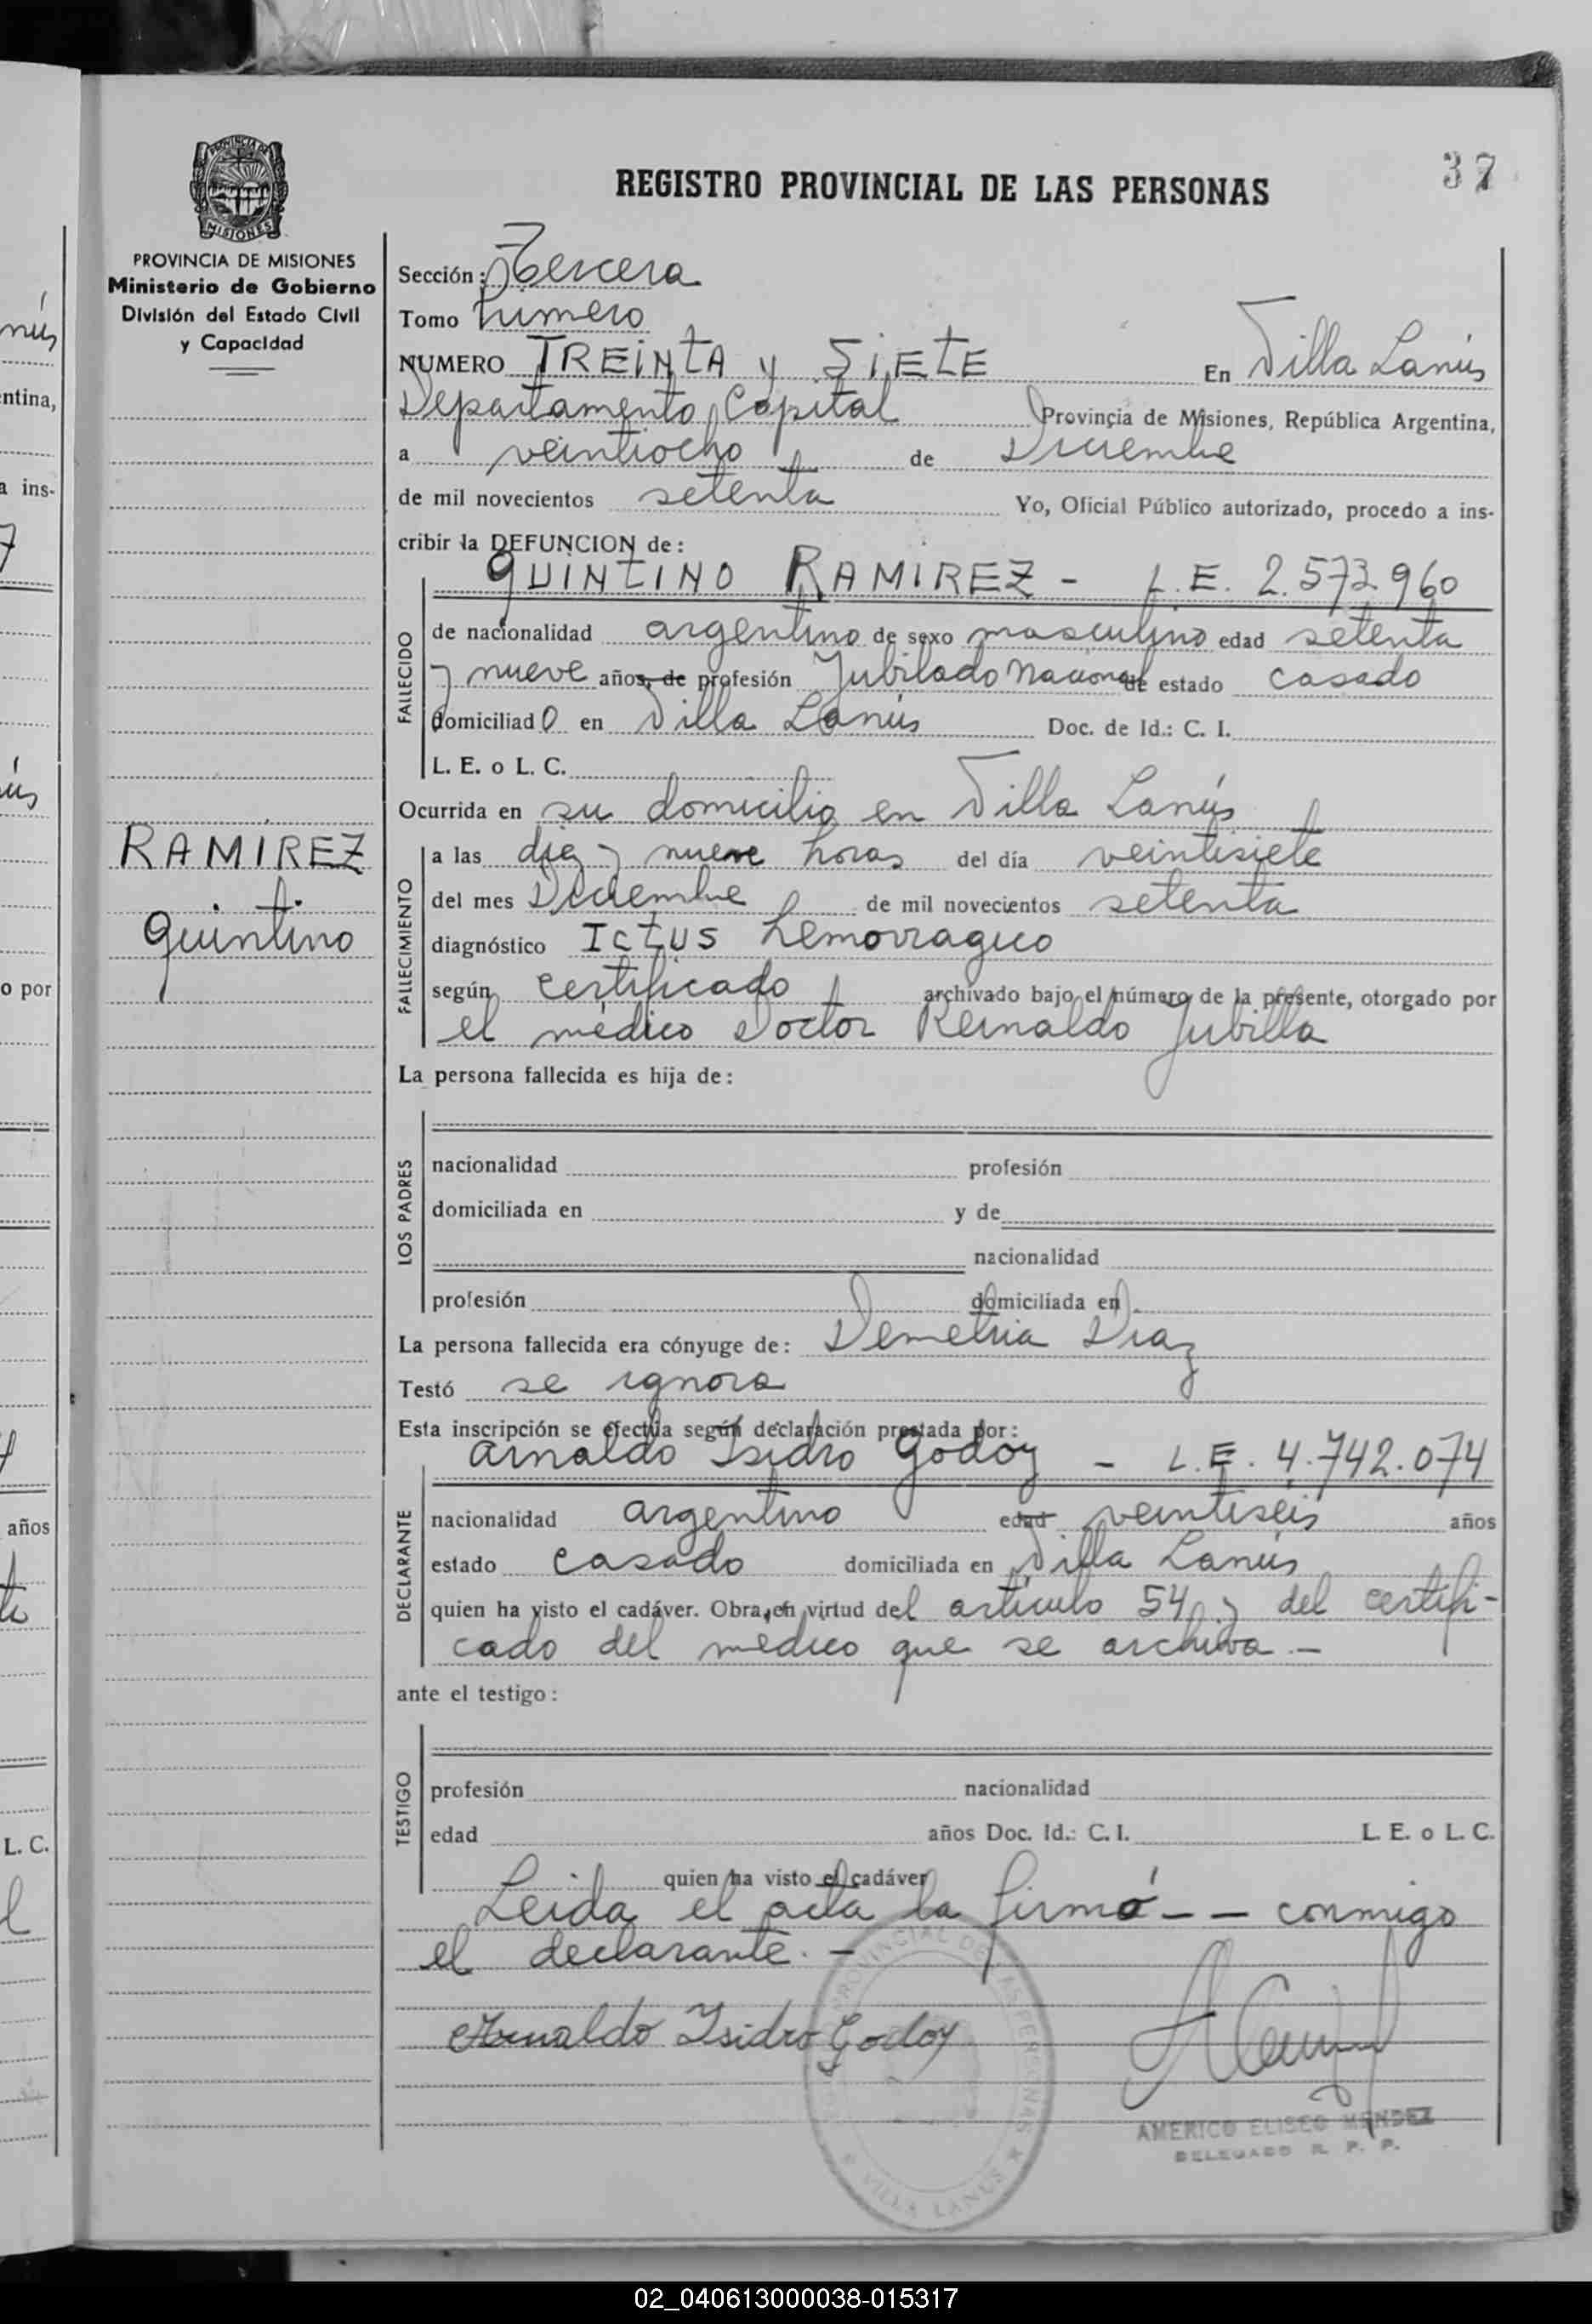 37
REGISTRO PROVINCIAL DE LAS PERSONAS
PROVINCIA DE MISIONES
MISIONES
PROVINCIA DE MISIONES
Ministerio de Gobierno
División del Estado Civil
y Capacidad
Sección: Tercera
Tomo Primero
NUMERO TREINTA y SIETE En Villa Lanús
Departamento Capital Provincia de Misiones, República Argentina,
a veintiocho de Diciembre
de mil novecientos setenta Yo, Oficial Público autorizado, procedo a ins-
cribir la DEFUNCION de:
QUINTINO RAMIREZ - L.E. 2.573.960
FALLECIDO
de nacionalidad argentino de sexo masculino edad setenta
y nueve años, de profesión Jubilado Nacional de estado casado
domiciliado en Villa Lanús Doc. de Id.: C. I.
L. E. o L. C.
Ocurrida en su domicilio en Villa Lanús
RAMIREZ
Quintino
FALLECIMIENTO
a las diez y nueve horas del día veintisiete
del mes Diciembre de mil novecientos setenta
diagnóstico Ictus hemorragico
según certificado archivado bajo el número de la presente, otorgado por
el médico Doctor Reinaldo Jubilla
La persona fallecida es hija de:
LOS PADRES
nacionalidad profesión
domiciliada en y de
nacionalidad
profesión domiciliada en
La persona fallecida era cónyuge de: Demetria Diaz
Testó se ignora
Esta inscripción se efectúa según declaración prestada por:
Arnaldo Isidro Godoy - L.E. 4.742.074
DECLARANTE
nacionalidad argentino edad veintiseis años
estado casado domiciliada en Villa Lanús
quien ha visto el cadáver. Obra, en virtud del artículo 54, y del certifi-
cado del médico que se archiva. -
ante el testigo:
TESTIGO
profesión nacionalidad
edad años Doc. Id.: C. I. L. E. o L. C.
quien ha visto el cadáver
Leida el acta la firmó - - conmigo
el declarante. -
Arnaldo Isidro Godoy
PROVINCIAL DE LAS PERSONAS
VILLA LANUS
AMERICO ELISEO MENDEZ
DELEGADO R. P. P.
nús
ntina,
a ins-
7
ús
o por
años
L. C.
02_040613000038-015317